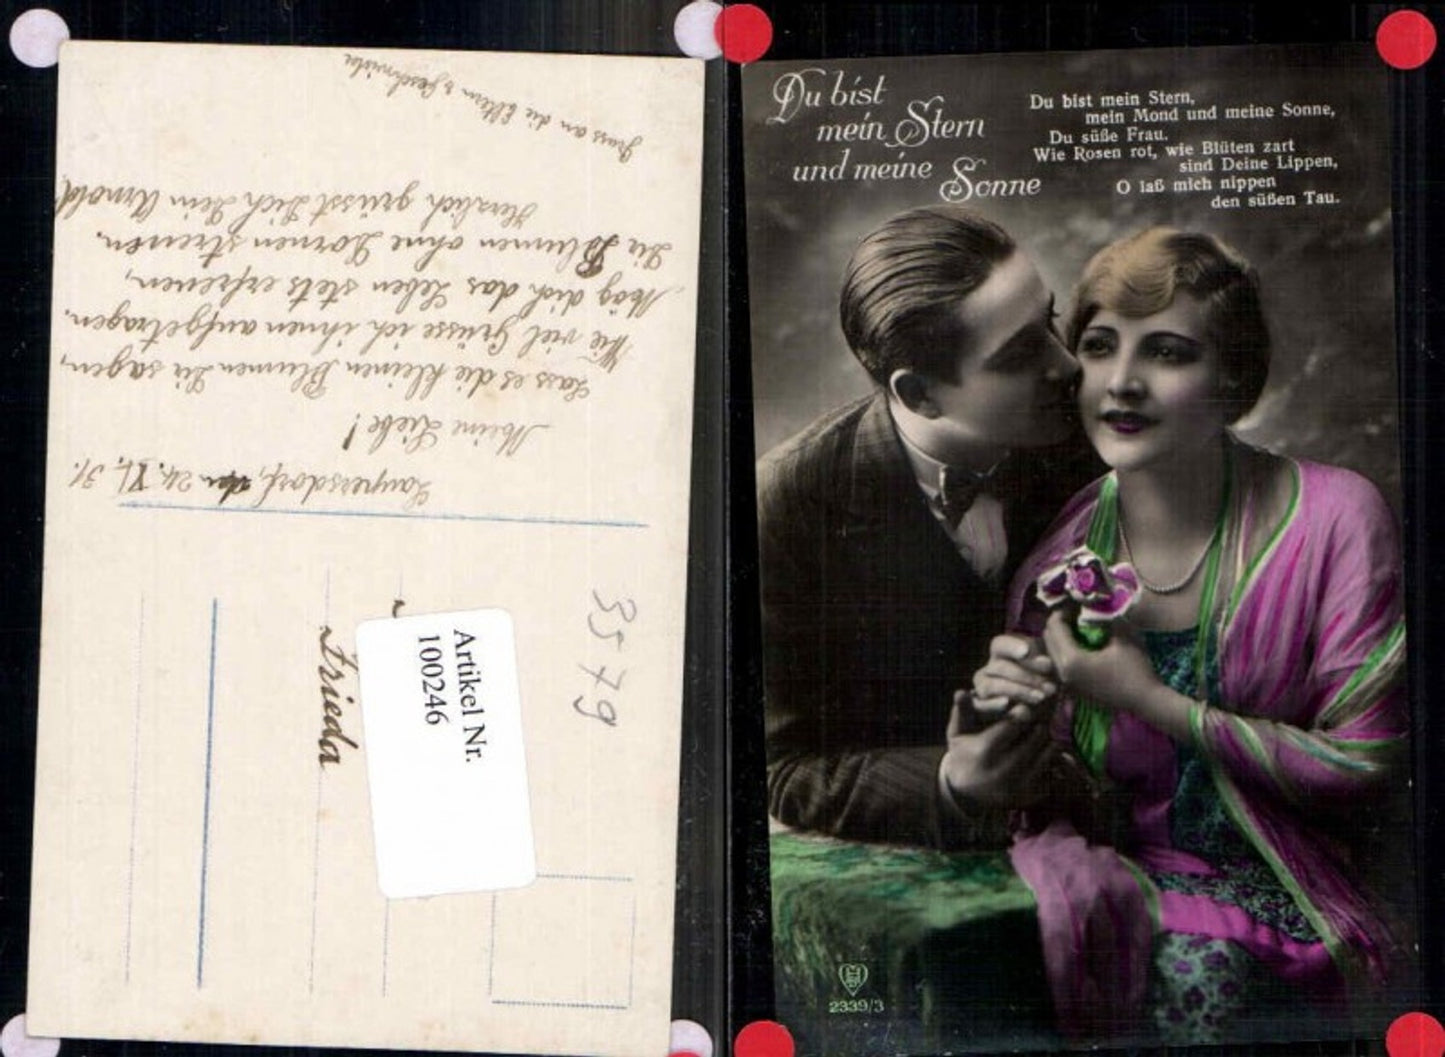 Gruss an die Eltern & Geschwister
Laupersdorf, den 24. XI. 31.
Meine Liebe!
Lass es die kleinen Blumen Dir sagen,
Wie viel Grüsse ich ihnen aufgetragen.
Mög dich das Leben stets erfreuen,
Dir Blumen ohne Dornen streuen.
Herzlich grüsst Dich Dein Arnold
Frieda
Artikel Nr.
100246
3579
Du bist
mein Stern
und meine
Sonne
Du bist mein Stern,
mein Mond und meine Sonne,
Du süße Frau.
Wie Rosen rot, wie Blüten zart
sind Deine Lippen,
O laß mich nippen
den süßen Tau.
2339/3